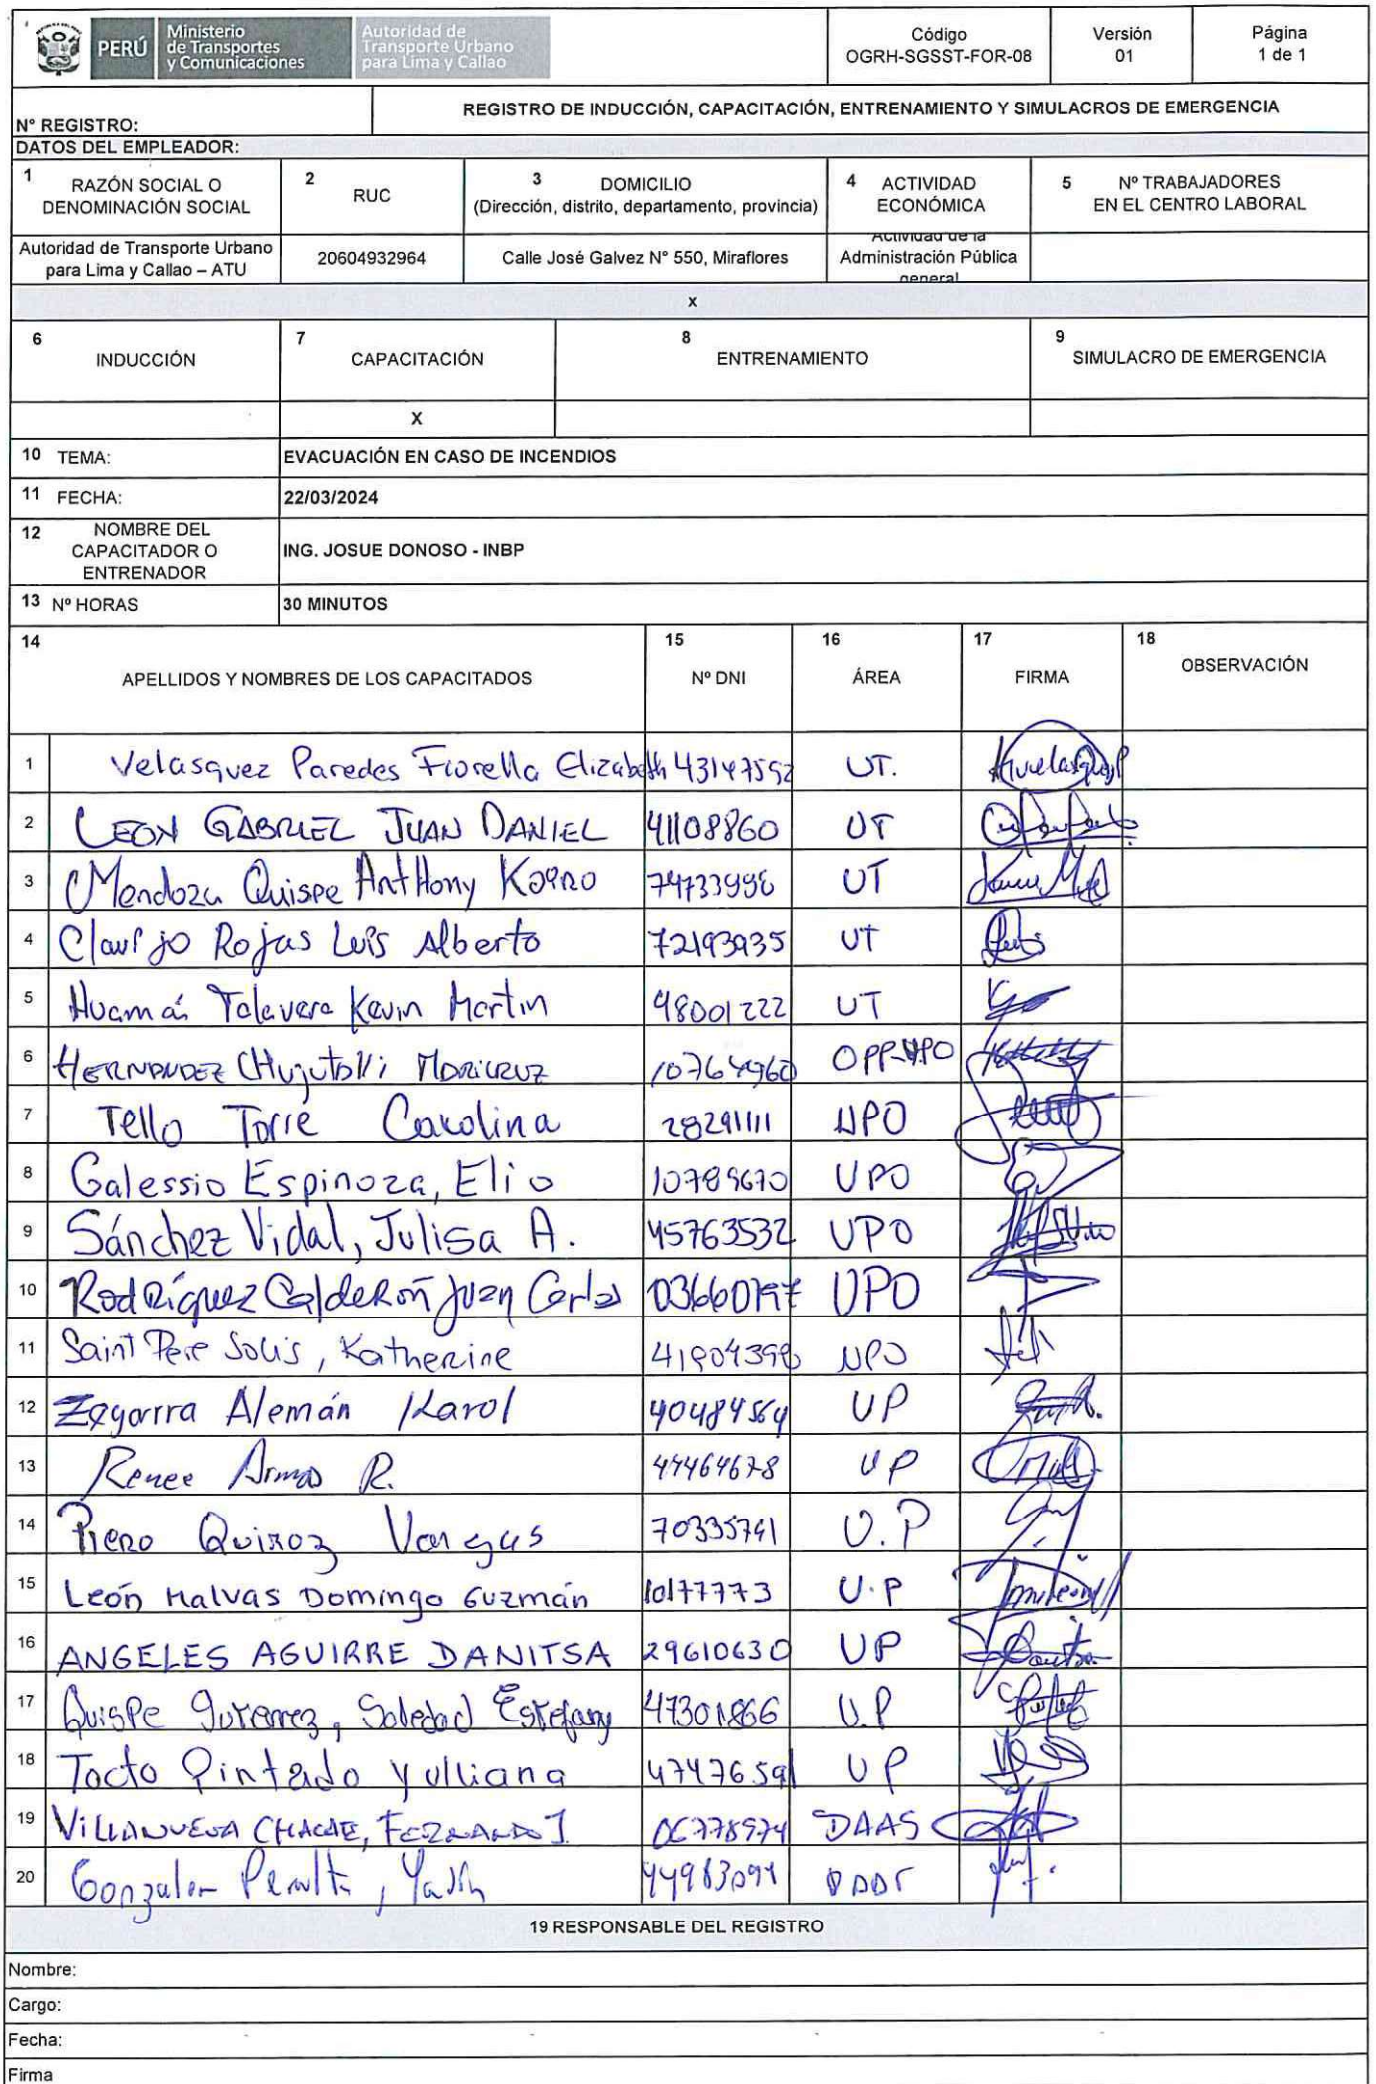 PERÚ Ministerio de Transportes y Comunicaciones Autoridad de Transporte Urbano para Lima y Callao
Código OGRH-SGSST-FOR-08
Versión 01
Página 1 de 1
N° REGISTRO:
REGISTRO DE INDUCCIÓN, CAPACITACIÓN, ENTRENAMIENTO Y SIMULACROS DE EMERGENCIA
DATOS DEL EMPLEADOR:
1 RAZÓN SOCIAL O DENOMINACIÓN SOCIAL
2 RUC
3 DOMICILIO (Dirección, distrito, departamento, provincia)
4 ACTIVIDAD ECONÓMICA
5 Nº TRABAJADORES EN EL CENTRO LABORAL
Autoridad de Transporte Urbano para Lima y Callao – ATU
20604932964
Calle José Galvez N° 550, Miraflores
Actividad de la Administración Pública general
x
6 INDUCCIÓN
7 CAPACITACIÓN
8 ENTRENAMIENTO
9 SIMULACRO DE EMERGENCIA
X
10 TEMA: EVACUACIÓN EN CASO DE INCENDIOS
11 FECHA: 22/03/2024
12 NOMBRE DEL CAPACITADOR O ENTRENADOR ING. JOSUE DONOSO - INBP
13 Nº HORAS 30 MINUTOS
14 APELLIDOS Y NOMBRES DE LOS CAPACITADOS
15 Nº DNI
16 ÁREA
17 FIRMA
18 OBSERVACIÓN
1 Velasquez Paredes Fiorella Elizabeth 43147552 UT.
2 LEON GABRIEL JUAN DANIEL 41108860 UT
3 Mendoza Quispe Anthony 74733996 UT
4 Clavijo Rojas Luis Alberto 72193935 UT
5 Huamá Talavera Kevin Martin 48001222 UT
6 HERNANDEZ MARICRUZ 10764960 OPP-UPO
7 Tello Torre Carolina 28291111 UPO
8 Galessio Espinoza, Elio UPO
9 Sánchez Vidal, Julisa A. 45763532 UPO
10 Rodríguez Calderón Juan Carlos UPO
11 Saint Pere Solis, Katherine UPO
12 Zegarra Alemán Karol 40484564 UP
13 Renee Armas R. 44464678 UP
14 Piero Quiroz Vargas 70335741 U.P
15 León Malvas Domingo Guzmán 10177773 U.P
16 ANGELES AGUIRRE DANITSA 29610630 UP
17 Quispe Gutierrez, Soledad Estefany 47301866 U.P
18 Tocto Pintado Yulliana 47476591 UP
19 VILLANUEVA FERNANDO J. 06778974 DAAS
20 Gonzales Peralta,
19 RESPONSABLE DEL REGISTRO
Nombre:
Cargo:
Fecha:
Firma